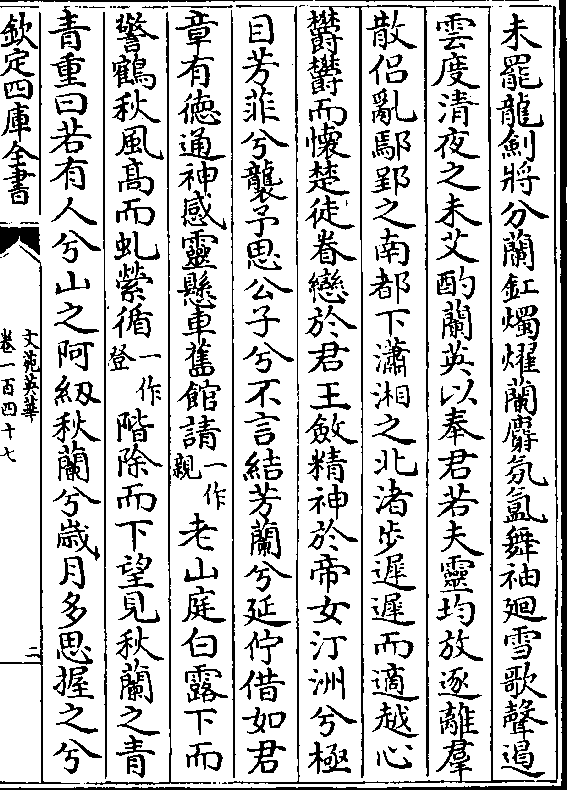 未罷龍劍將分蘭釭燭耀蘭麝氛氲舞袖廻雪歌聲遏
雲度清夜之未艾酌蘭英以奉君若夫靈均放逐離羣
散侣亂鄢郢之南都下瀟湘之北渚步遲遲而適越心
欝欝而懐楚徒眷戀於君王斂精神於帝女汀洲兮極
目芳菲兮襲予思公子兮不言結芳蘭兮延佇借如君
章有徳通神感靈懸車舊館請一作親老山庭白露下而
警鶴秋風髙而虬縈循一作登階除而下望見秋蘭之青
青重曰若有人兮山之阿紉秋蘭兮歳月多思握之兮
欽定四庫全書
文苑英華
卷一百四十七
二